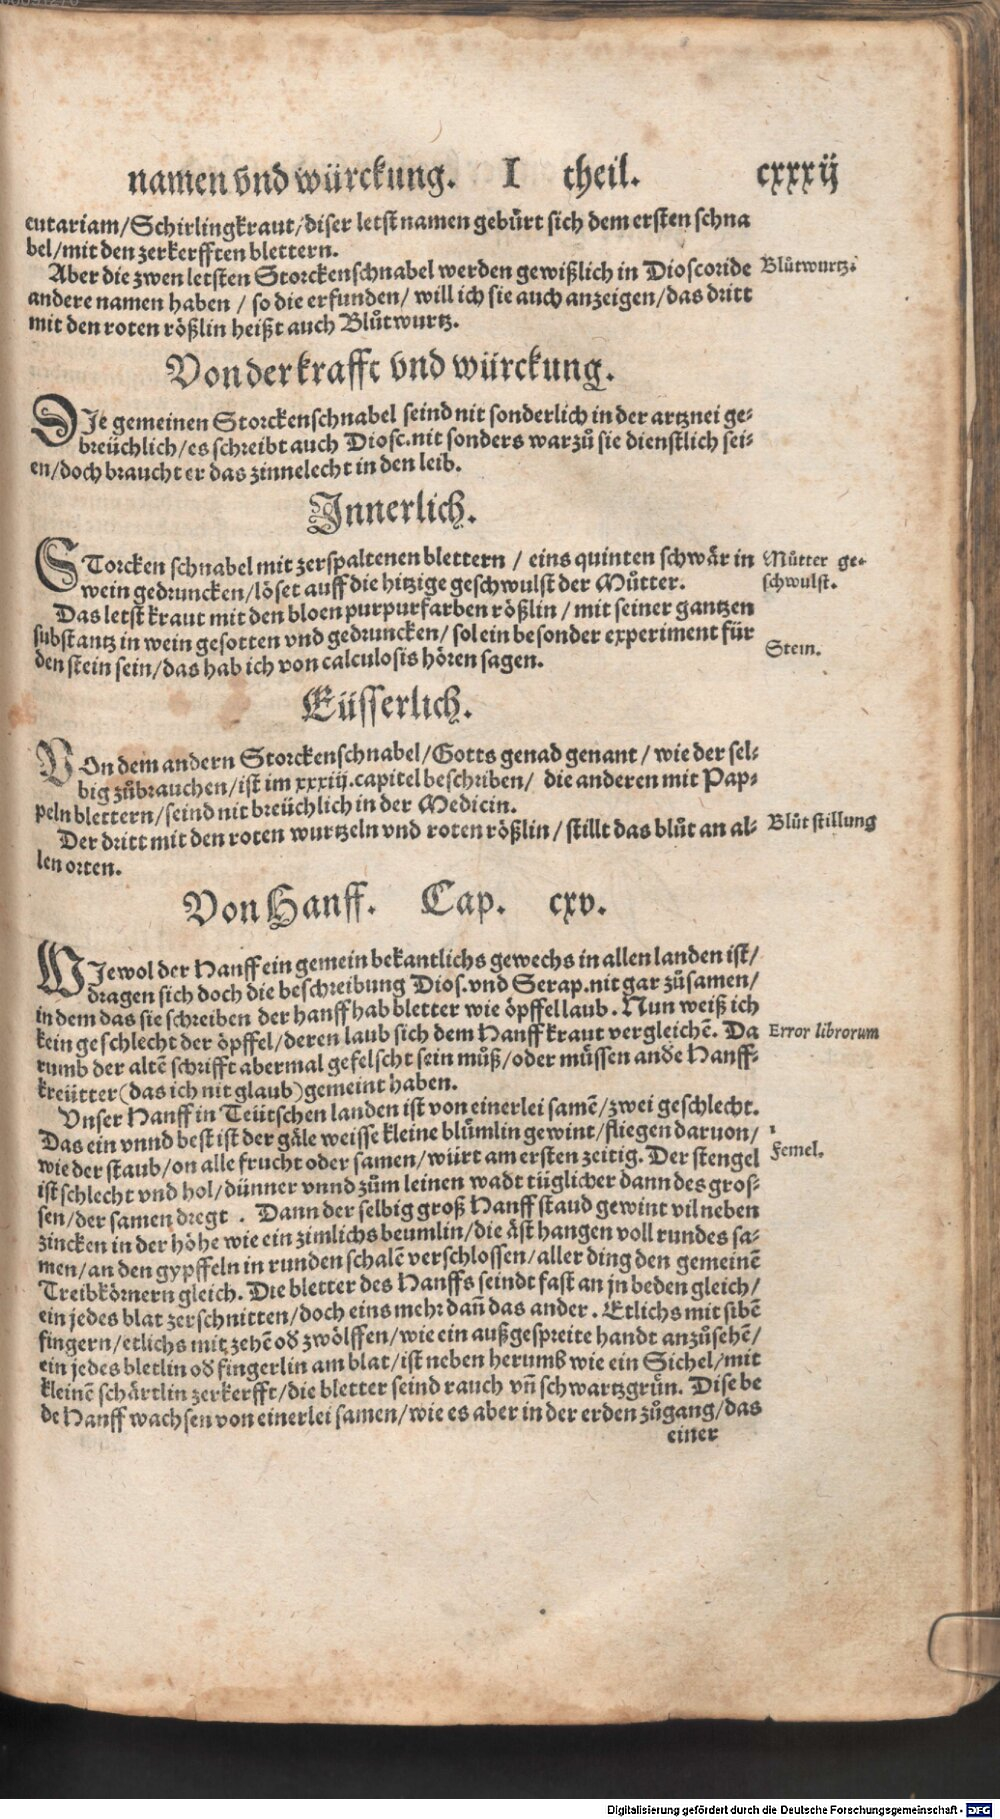 namen vnd würckung. I theil. cxxxij
cutariam/Schirlingkraut/diser letst namen gebürt sich dem ersten schna
bel/mit den zerkerfften blettern.
Aber die zwen letsten Storckenschnabel werden gewißlich in Dioscoride
Blůtwurtz.
andere namen haben / so die erfunden/ will ich sie auch anzeigen/das dritt
mit den roten rößlin heißt auch Blůtwurtz.
Von der krafft vnd würckung.
DIe gemeinen Storckenschnabel seind nit sonderlich in der artznei ge-
breüchlich/es schreibt auch Diosc.nit sonders warzů sie dienstlich sei-
en/doch braucht er das zinnelecht in den leib.
Innerlich.
STorcken schnabel mit zerspaltenen blettern / eins quinten schwär in
Můtter ge-
wein gedruncken/löset auff die hitzige geschwulst der Můtter.
schwulst.
Das letst kraut mit den bloen purpurfarben rößlin / mit seiner gantzen
substantz in wein gesotten vnd gedruncken/ sol ein besonder experiment für
Stein.
den stein sein/das hab ich von calculosis hören sagen.
Eüsserlich.
VOn dem andern Storckenschnabel/Gotts genad genant / wie der sel-
big zůbrauchen/ist im xxxiij.capitel beschriben/ die anderen mit Pap-
peln blettern/seind nit breüchlich in der Medicin.
Der dritt mit den roten wurtzeln vnd roten rößlin / stillt das blůt an al-
Blůt stillung
len orten.
Von Hanff. Cap. cxv.
WIewol der Hanff ein gemein bekantlichs gewechs in allen landen ist/
dragen sich doch die beschreibung Dios.vnd Serap.nit gar zůsamen/
in dem das sie schreiben der hanff hab bletter wie öpffellaub. Nun weiß ich
kein geschlecht der öpffel/deren laub sich dem Hanff kraut vergleichē. Da
Error librorum
rumb der altē schrifft abermal gefelscht sein můß/oder müssen andere Hanff-
kreütter(das ich nit glaub)gemeint haben.
Vnser Hanff in Teütschen landen ist von einerlei samē/zwei geschlecht.
1
Das ein vnnd best ist der gäle weisse kleine blümlin gewint/fliegen daruon/
Femel.
wie der staub/on alle frucht oder samen/würt am ersten zeitig. Der stengel
ist schlecht vnd hol/dünner vnnd zům leinen wadt tüglicher dann des gros-
sen/der samen dregt . Dann der selbig groß Hanff staud gewint vil neben
zincken in der höhe wie ein zimlichs beumlin/die äst hangen voll rundes sa-
men/an den gypffeln in runden schalē verschlossen/aller ding den gemeinē
Treibkörnern gleich. Die bletter des Hanffs seindt fast an jn beden gleich/
ein jedes blat zerschnitten/doch eins mehr dañ das ander. Etlichs mit sibē
fingern/etlichs mit zehē oð zwölffen/wie ein außgespreite handt anzůsehē/
ein jedes bletlin oð fingerlin am blat/ist neben herumb wie ein Sichel/mit
kleinē schärtlin zerkerfft/die bletter seind rauch vñ schwartzgrün. Dise be
de Hanff wachsen von einerlei samen/wie es aber in der erden zůgang/das
einer
Digitalisierung gefördert durch die Deutsche Forschungsgemeinschaft - DFG